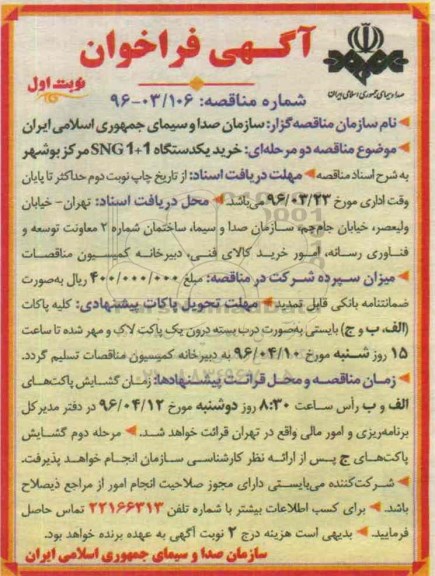 آگهی فراخوان
صدا و سیمای جمهوری اسلامی ایران
نوبت اول
شماره مناقصه: ۹۶-۰۳/۱۰۶
نام سازمان مناقصه‌گزار: سازمان صدا و سیمای جمهوری اسلامی ایران
موضوع مناقصه دو مرحله‌ای: خرید یکدستگاه SNG 1+1 مرکز بوشهر
به شرح اسناد مناقصه مهلت دریافت اسناد: از تاریخ چاپ نوبت دوم حداکثر تا پایان
وقت اداری مورخ ۹۶/۰۳/۲۳ می‌باشد. محل دریافت اسناد: تهران- خیابان
ولیعصر، خیابان جام‌جم، سازمان صدا و سیما، ساختمان شماره ۲ معاونت توسعه و
فناوری رسانه، امور خرید کالای فنی، دبیرخانه کمیسیون مناقصات
میزان سپرده شرکت در مناقصه: مبلغ ۴۰۰/۰۰۰/۰۰۰ ریال به‌صورت
ضمانتنامه بانکی قابل تمدید مهلت تحویل پاکات پیشنهادی: کلیه پاکات
(الف، ب و ج) بایستی به‌صورت درب بسته درون یک پاکت لاک و مهر شده تا ساعت
۱۵ روز شنبه مورخ ۹۶/۰۴/۱۰ به دبیرخانه کمیسیون مناقصات تسلیم گردد.
زمان مناقصه و محل قرائت پیشنهادها: زمان گشایش پاکت‌های
الف و ب رأس ساعت ۸:۳۰ روز دوشنبه مورخ ۹۶/۰۴/۱۲ در دفتر مدیرکل
برنامه‌ریزی و امور مالی واقع در تهران قرائت خواهد شد. مرحله دوم گشایش
پاکت‌های ج پس از ارائه نظر کارشناسی سازمان انجام خواهد پذیرفت.
شرکت‌کننده می‌بایستی دارای مجوز صلاحیت انجام امور از مراجع ذیصلاح
باشد. برای کسب اطلاعات بیشتر با شماره تلفن ۲۲۱۶۶۳۱۳ تماس حاصل
فرمایید. بدیهی است هزینه درج ۲ نوبت آگهی به عهده برنده خواهد بود.
سازمان صدا و سیمای جمهوری اسلامی ایران